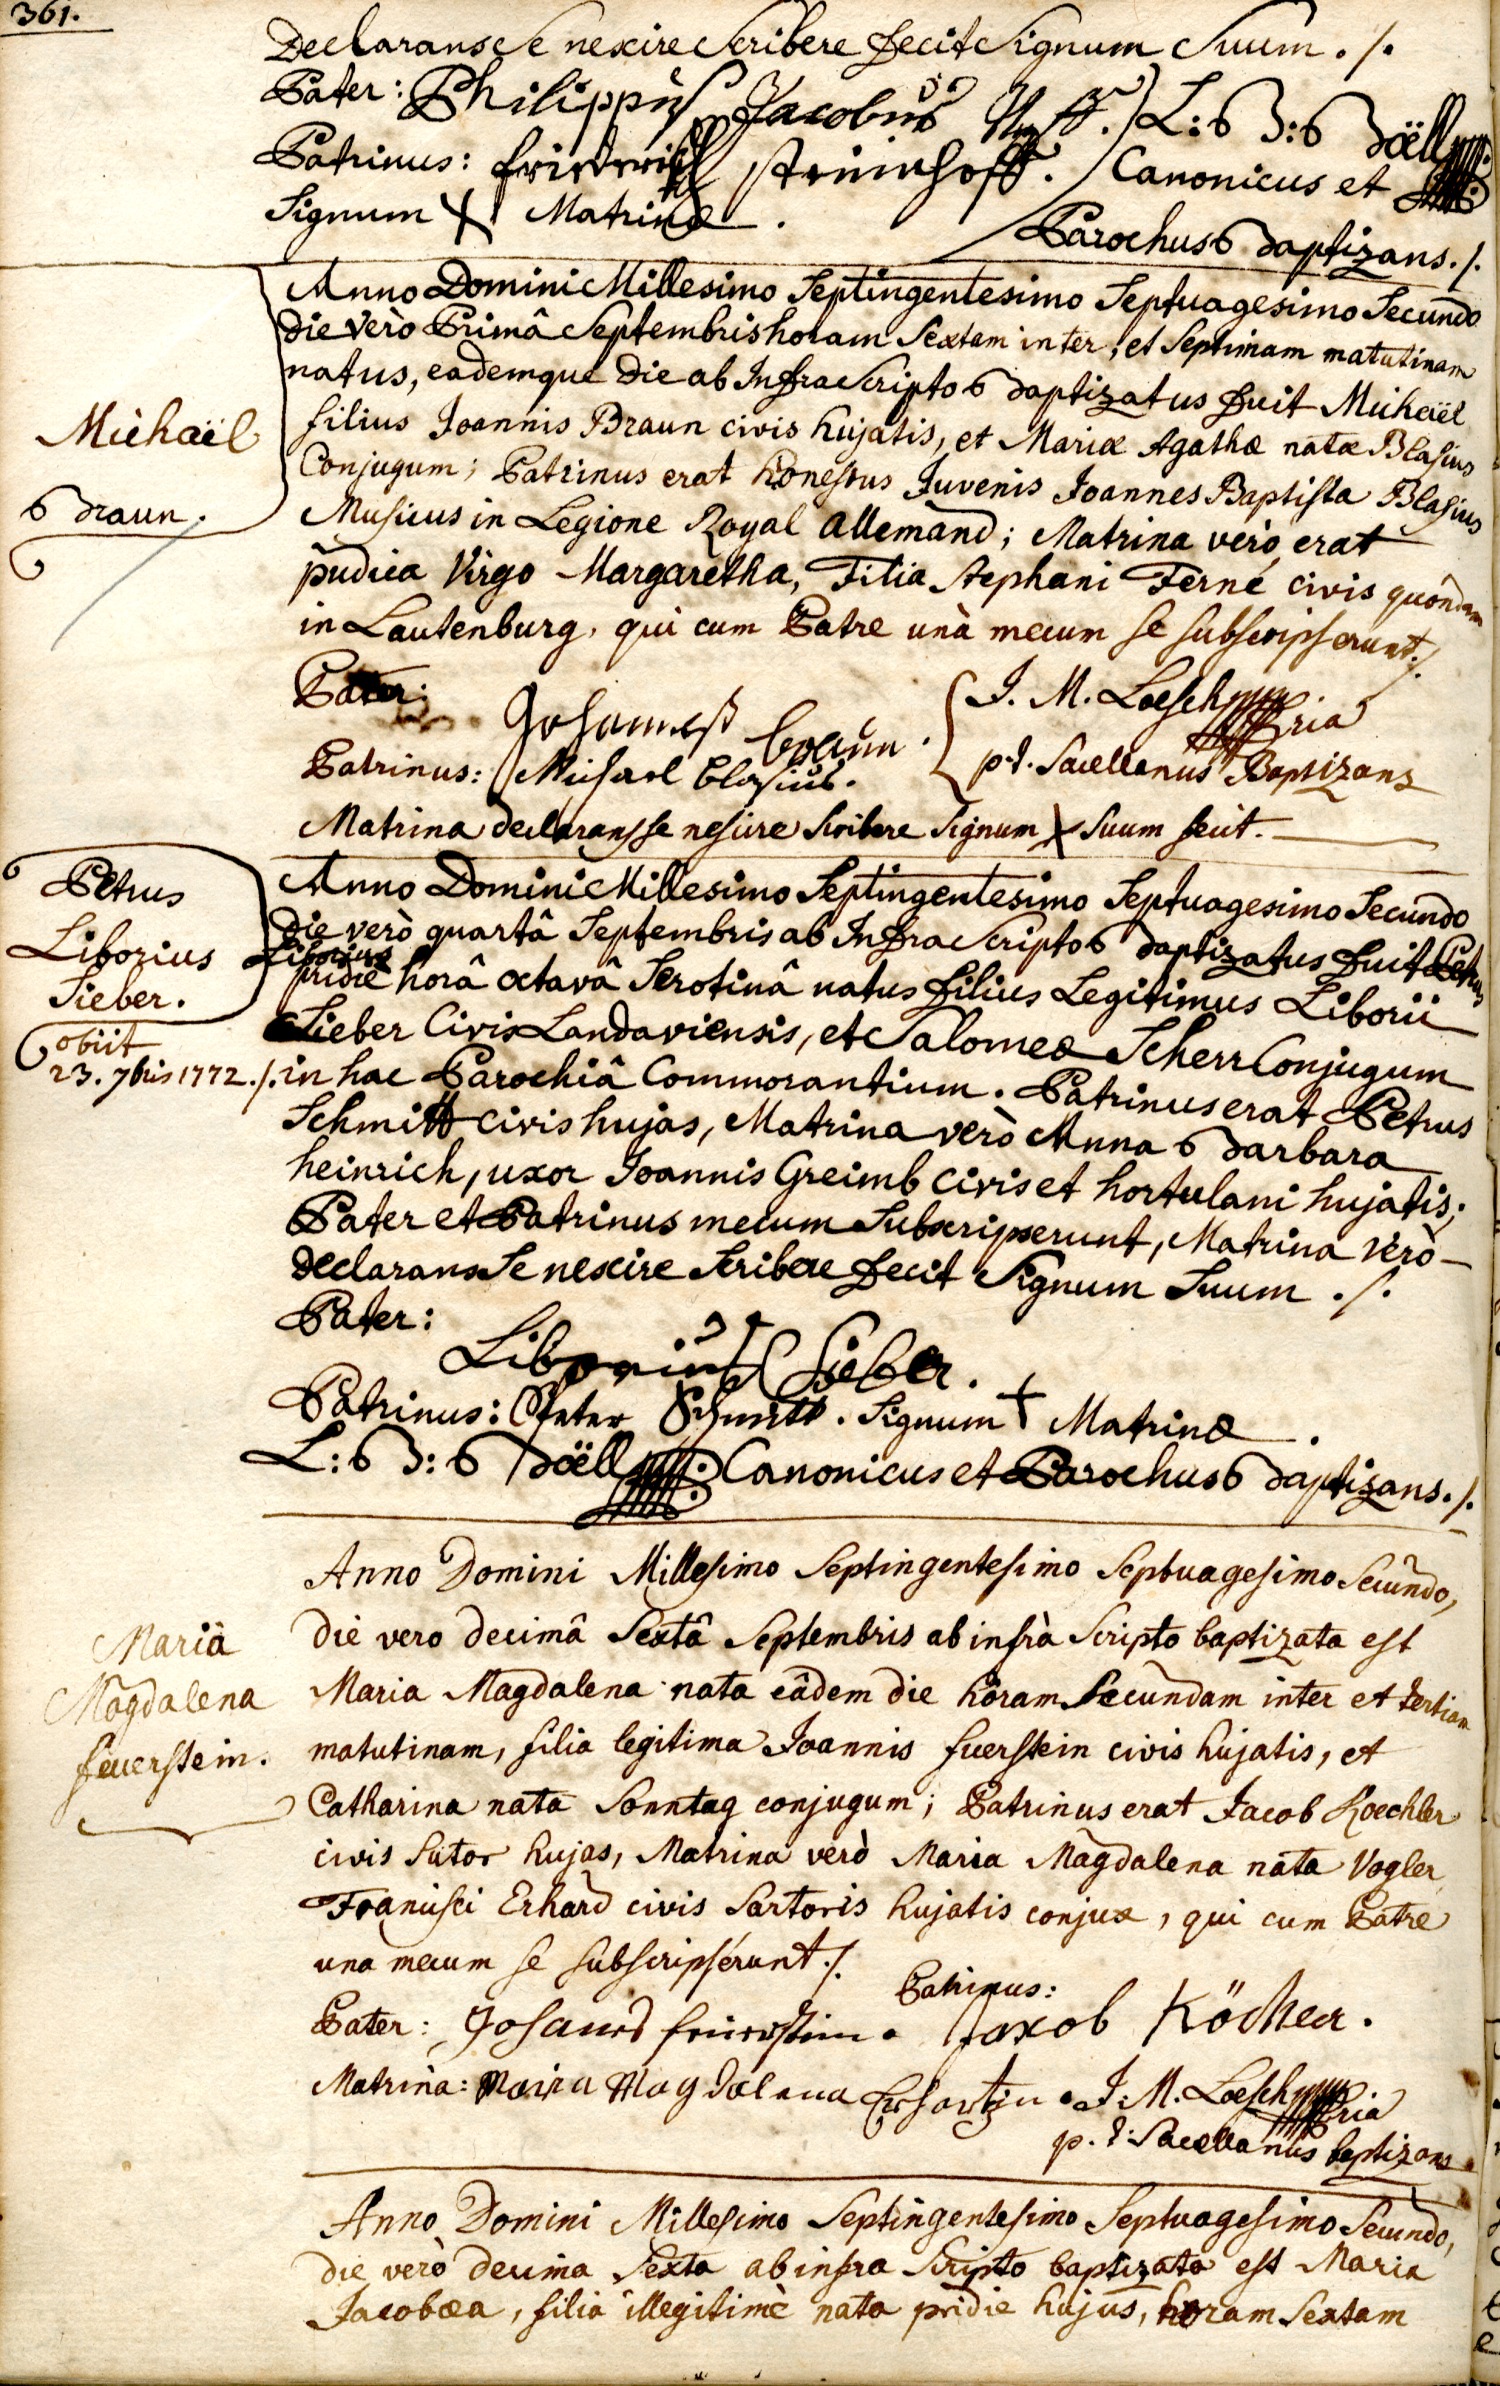 361.
Declarans Se nescire Scribere fecit Signum Suum ./.
Pater: Philippus Jacobus
L: B: Böell
Patrinus: Friderich Steinhoff.
Canonicus et
Signum X Matrinæ.
Parochus Baptizans ./.
Anno Domini Millesimo Septingentesimo Septuagesimo Secundo
die verò Primâ Septembris horam Sextam inter, et Septimam matutinam
natus, eademque die ab Infra Scripto Baptizatus fuit Michaël
Michaël
Braun.
filius Joannis Braun civis hujatis, et Mariæ Agathæ natæ Blasius
Conjugum; Patrinus erat honestus Juvenis Joannes Baptista Blasius
Musicus in Legione Royal allemand; Matrina verò erat
pudica Virgo Margaretha, Filia Stephani Ferné civis quondam
in Lautenburg, qui cum Patre unà mecum se subscripserunt ./.
Pater: Johannes braun.
J. M. Loesch mppria
Patrinus: Michael blasius.
p. t. Sacellanus Baptizans
Matrina declarans se nescire scribere Signum X Suum fecit.
Petrus
Liborius
Sieber.
obiit
23. 7bris 1772 ./.
Anno Domini Millesimo Septingentesimo Septuagesimo Secundo
die verò quartâ Septembris ab Infra Scripto Baptizatus fuit Petrus
Liborius
pridie horâ octavâ Serotinâ natus filius Legitimus Liborii
Sieber Civis Landaviensis, et Salomeæ Scherr Conjugum
in hac Parochiâ Commorantium. Patrinus erat Petrus
Schmitt civis hujas, Matrina verò Anna Barbara
heinrich, uxor Joannis Greimb civis et hortulani hujatis;
Pater et Patrinus mecum Subscripserunt, Matrina verò
declarans Se nescire Scribere fecit Signum Suum ./.
Pater: Liborius Sieber.
Patrinus: Peter Schmitt. Signum + Matrinæ.
L: B: Böell Canonicus et Parochus Baptizans ./.
Maria
Magdalena
feuerstein.
Anno Domini Millesimo Septingentesimo Septuagesimo Secundo,
die vero decimâ Sextâ Septembris ab infrà Scripto baptizata est
Maria Magdalena nata eâdem die horam Secundam inter et tertiam
matutinam, filia legitima Joannis fuerstein civis hujatis, et
Catharina nata Sonntag conjugum; Patrinus erat Jacob Koechler
civis Sutor hujas, Matrina verò Maria Magdalena nata Vogler
Francisci Erhard civis Sartoris hujatis conjux, qui cum Patre
una mecum se subscripserunt ./.
Patrinus:
Pater: Johanes feierstein. Jaxob Köcher.
Matrina: Maira Magdalena Erhartin. J. M. Loesch mppria
p. t. Sacellanus baptizans
Anno Domini Millesimo Septingentesimo Septuagesimo Secundo,
die verò decima Sexta ab infra Scripto baptizata est Maria
Jacobæa, filia illegitimè nata pridie hujus, horam Sextam